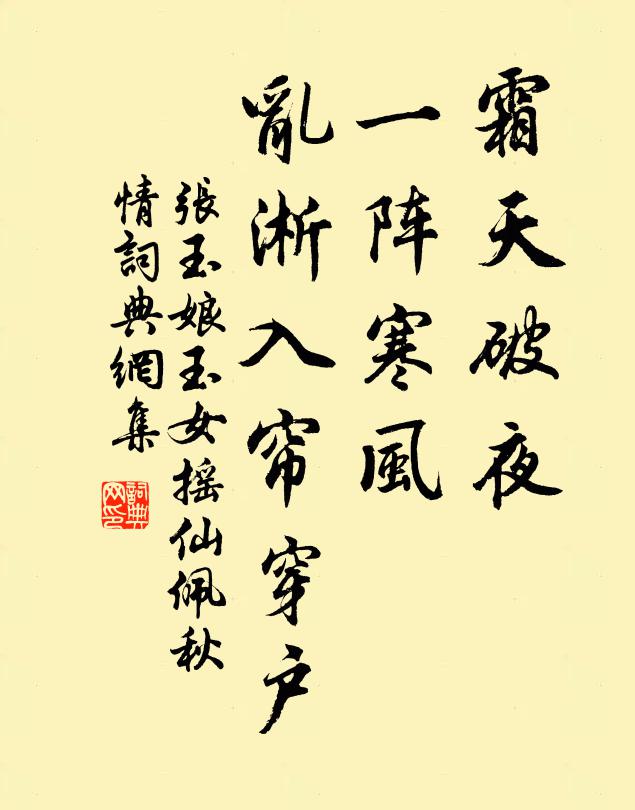 霜天破夜
一阵寒風
亂淅入帘穿户
張玉娘玉女摇仙佩秋
情詞典網集
詞典
网印